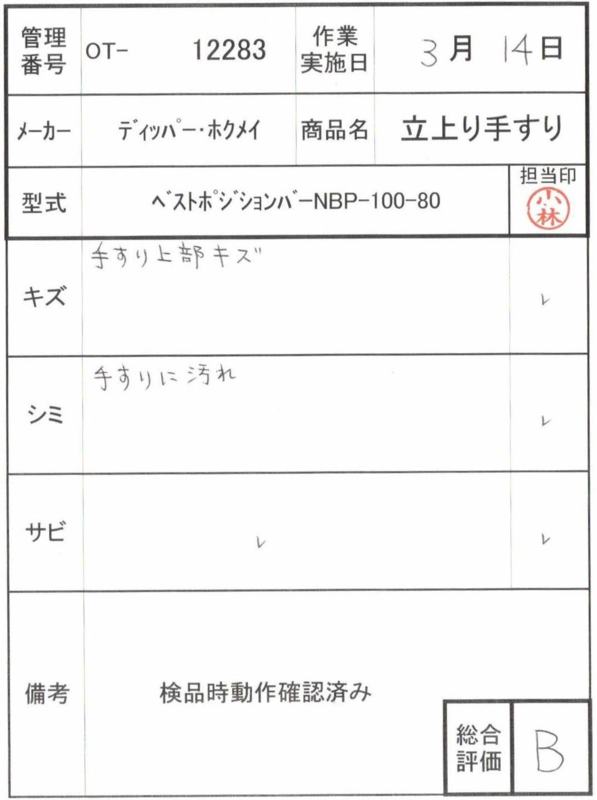 管理番号 OT- 12283 作業実施日 3月 14日
メーカー ﾃﾞｨｯﾊﾟｰ･ﾎｸﾒｲ 商品名 立上り手すり
型式 ﾍﾞｽﾄﾎﾟｼﾞｼｮﾝﾊﾞｰNBP-100-80 担当印 小林
キズ 手すり上部キズ ✓
シミ 手すりに汚れ ✓
サビ ✓ ✓
備考 検品時動作確認済み
総合評価 B